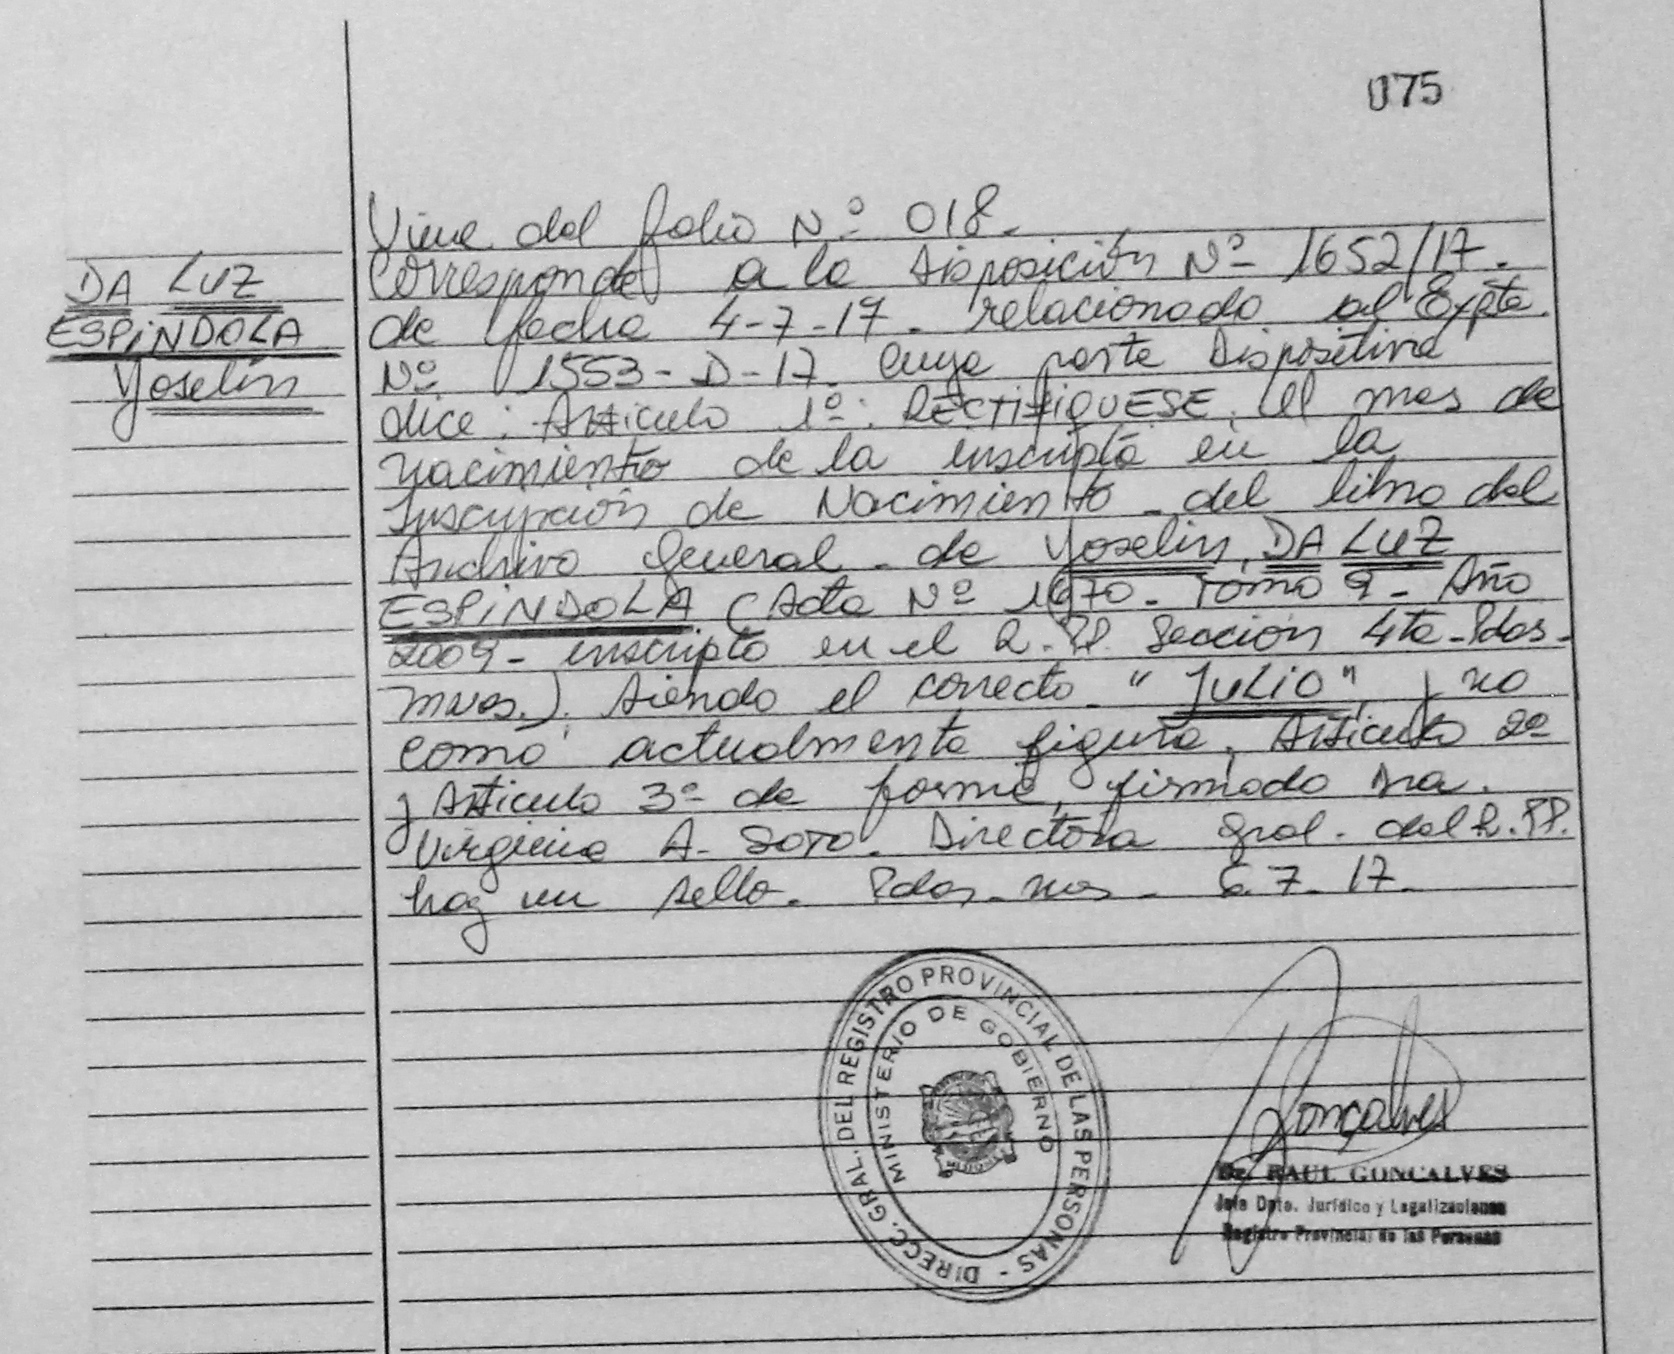 075
DA LUZ
ESPINDOLA
Yoselin
Viene del folio Nº 018.
Corresponde a la Disposición Nº 1652/17.
de fecha 4-7-17. relacionado al Expte.
Nº 1553-D-17. cuya parte Dispositiva
dice: Articulo 1º: RECTIFIQUESE, el mes de
nacimiento de la inscripta en la
Inscripción de Nacimiento - del libro del
Archivo General - de Yoselin, DA LUZ
ESPINDOLA (Acta Nº 1670 - Tomo 9 - Año
2009 - inscripto en el R.PP. Sección 4ta - Pdas -
mnes.). siendo el correcto "JULIO", y no
como actualmente figura, Articulo 2º
y Articulo 3º de forma, firmado Dra.
Virginia A. SOTO. Directora Gral. del R.PP.
hay un sello. Pdas. mns - 6.7.17.
DIRECC. GRAL. DEL REGISTRO PROVINCIAL DE LAS PERSONAS -
MINISTERIO DE GOBIERNO
MISIONES
Gonçalves
Dr. RAUL GONCALVES
Jefe Dpto. Jurídico y Legalizaciones
Registro Provincial de las Personas